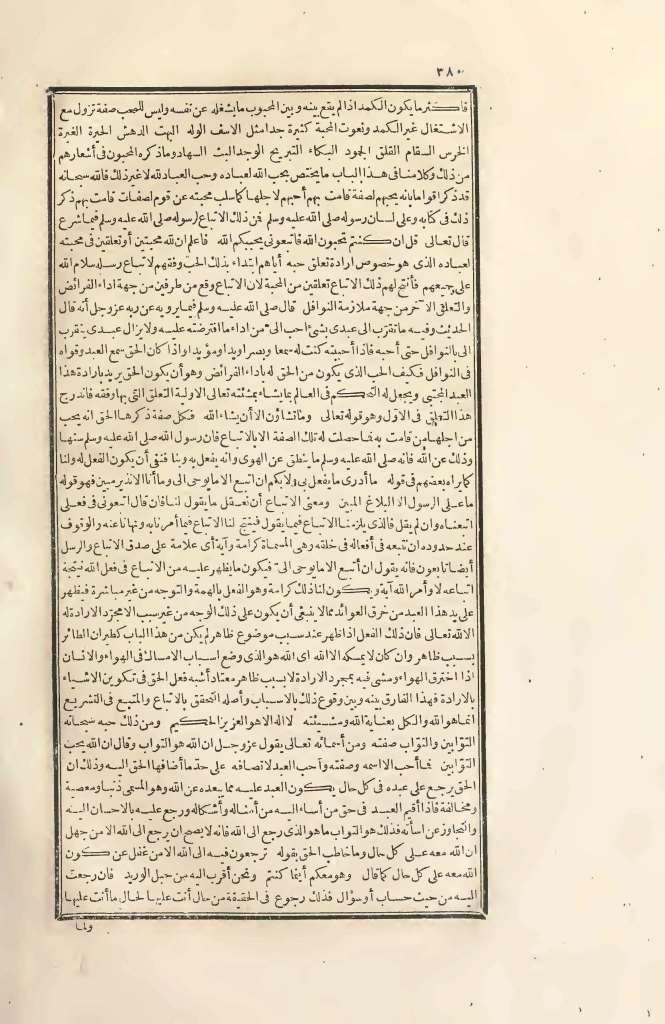 ٣٨٠
فاكثر ما يكون الكمد اذا لم يقع بينه و بين المحبوب ما يشغله عن نفسه وليس للحب صفة تزول مع
الاشتغال غير الكمد ونعوت المحبة كثيرة جدا مثل الاسف الوله البهت الدهش الحيرة الغيرة
الخرس السقام القلق الجمود البكاء التبريح الوجد البث السهاد وما ذكره المحبون في أشعارهم
من ذلك وكلامنا في هذا الباب ما يختص بحب الله لعباده وحب العباد لله لا غير ذلك فالله سبحانه
قد ذكر اقواما بانه يحبهم لصفة قامت بهم أحبهم لاجلها كما سلب محبته عن قوم لصفات قامت بهم ذكر
ذلك في كتابه وعلى لسان رسوله صلى الله عليه وسلم فمن ذلك الاتباع لرسوله صلى الله عليه وسلم فيما شرع
قال تعالى قل ان كنتم تحبون الله فاتبعوني يحببكم الله فاعلم ان لله محبتين أو تعلقين في محبته
لعباده الذى هو خصوص ارادة تعلق حبه أياهم ابتداء بذلك الحب وفقهم لاتباع رسله سلام الله
على جميعهم فأنتج لهم ذلك الاتباع تعلقين من المحبة لان الاتباع وقع من طرفين من جهة اداء الفرائض
والتعلق الآخر من جهة ملازمة النوافل قال صلى الله عليه وسلم فيما يرويه عن ربه عز وجل أنه قال
الحديث وفيه ما تقرب الى عبدى بشئ احب الىّ من اداء ما افترضته عليه ولا يزال عبدى يتقرب
الى بالنوافل حتى أحبه فاذا أحببته كنت له سمعا وبصرا ويدا ومؤيدا واذا كان الحق سمع العبد وقواه
في النوافل فكيف الحب الذى يكون من الحق له باداء الفرائض وهو أن يكون الحق يريد بارادة هذا
العبد المجتبى ويجعل له التحكم في العالم بما يشاء بمشئته تعالى الاولية التعلق التى بها وفقه فاندرج
هذا التعلق في الاول وهو قوله تعالى وما تشاؤن الا أن يشاء الله فكل صفة ذكرها الحق انه يحب
من اجلها من قامت به فما حصلت له تلك الصفة الا بالاتباع فان رسول الله صلى الله عليه وسلم سنها
وذلك عن الله فانه صلى الله عليه وسلم ما ينطق عن الهوى وانه يفعل به وبنا فنفى أن يكون الفعل له ولنا
كما يراه بعضهم في قوله ما أدرى ما يفعل بى ولا بكم ان اتبع الا ما يوحى الى وما أنا الا نذير مبين فهو قوله
ما على الرسول الا البلاغ المبين ومعنى الاتباع أن نفعل ما يقول لنا فان قال اتبعونى في فعلى
اتبعناه وان لم يقل فالذى يلزمنا الاتباع فيما يقول فينتج لنا الاتباع فيما أمرنا به ونهانا عنه والوقوف
عند حدوده ان نتبعه في أفعاله في خلقه وهى المسماة كرامة وآية أى علامة على صدق الاتباع والرسل
أيضا تابعون فانه يقول ان أتبع الا ما يوحى الىّ فيكون ما يظهر عليه من الاتباع في فعل الله نتيجة
اتباعه لاوامر الله آية ويكون لنا ذلك كرامة وهو الفعل بالهمة والتوجه من غير مباشرة فيظهر
على يد هذا العبد من خرق العوائد مما لا ينبغى أن يكون على ذلك الوجه من غير سبب الا مجرد الارادة له
الا لله تعالى فان ذلك الفعل اذا ظهر عند سبب موضوع ظاهر لم يكن من هذا الباب كطيران الطائر
بسبب ظاهر وان كان لا يمسكه الا الله اى الله هو الذى وضع اسباب الامساك في الهواء والانسان
اذا اخترق الهواء ومشى فيه بمجرد الارادة لا بسبب ظاهر معتاد أشبه فعل الحق في تكوين الاشياء
بالارادة فهذا الفارق بينه وبين وقوع ذلك بالاسباب وأصله التحقق بالاتباع والمتبع في التشريع
انما هو الله والكل بعناية الله ومشيئته لا اله الا هو العزيز الحكيم ومن ذلك حبه سبحانه
التوابين والتواب صفته ومن أسمائه تعالى يقول عز وجل ان الله هو التواب وقال ان الله يحب
التوابين فما أحب الا اسمه وصفته وأحب العبد لاتصافه على حد ما أضافها الحق اليه وذلك ان
الحق يرجع على عبده في كل حال يكون العبد عليه مما يبعده عن الله وهو المسمى ذنبا ومعصية
ومخالفة فاذا أقيم العبد في حق من أساء اليه من أمثاله وأشكاله ورجع عليه بالاحسان اليه
والتجاوز عن اساأته فذلك هو التواب ما هو الذى رجع الى الله فانه لا يصح ان يرجع الى الله الا من جهل
ان الله معه على كل حال وما خاطب الحق بقوله ترجعون فيه الى الله الا من غفل عن كون
الله معه على كل حال كما قال وهو معكم أينما كنتم ونحن أقرب اليه من حبل الوريد فان رجعت
اليه من حيث حساب أو سؤال فذلك رجوع في الحقيقة من حال أنت عليها لحال ما أنت عليها
ولما